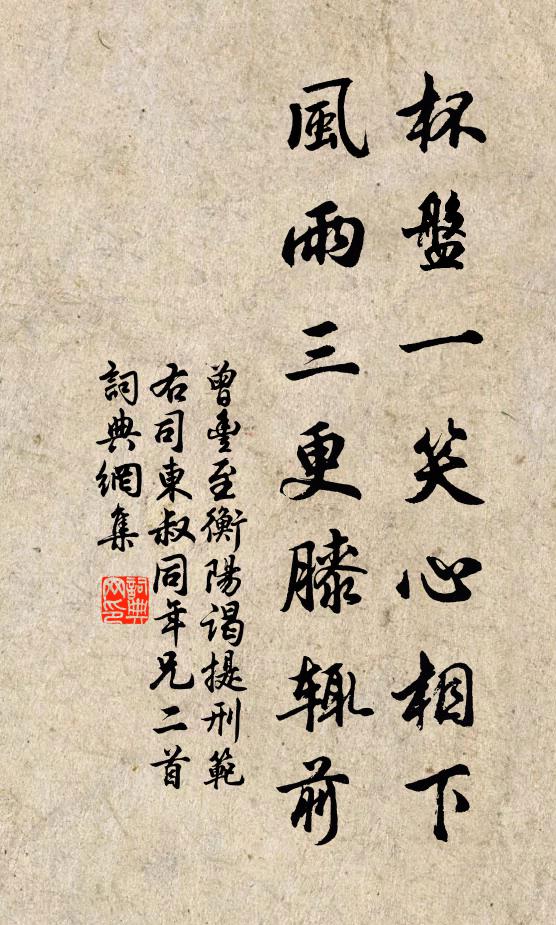 杯盤一笑心相下
風雨三更膝輒前
曾豊至衡陽谒提刑範
右司東叔同年兄二首
詞典網集
詞典
网印